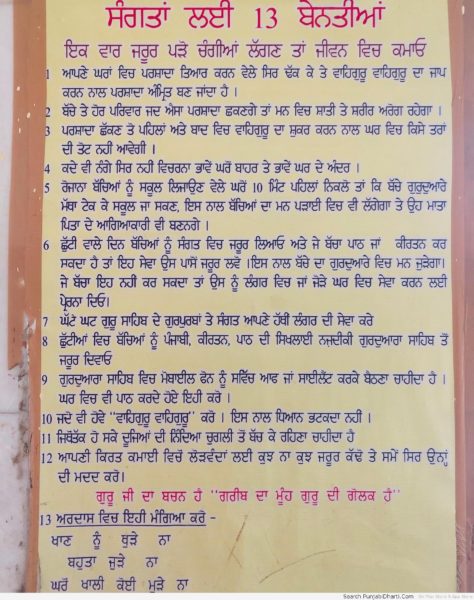 ਸੰਗਤਾਂ ਲਈ 13 ਬੇਨਤੀਆਂ
ਇਕ ਵਾਰ ਜ਼ਰੂਰ ਪੜੋ ਚੰਗੀਆਂ ਲੱਗਣ ਤਾਂ ਜੀਵਨ ਵਿਚ ਕਮਾਓ
1 ਆਪਣੇ ਘਰਾਂ ਵਿਚ ਪਰਸ਼ਾਦਾ ਤਿਆਰ ਕਰਨ ਵੇਲੇ ਸਿਰ ਢੱਕ ਕੇ ਤੇ ਵਾਹਿਗੁਰੂ ਵਾਹਿਗੁਰੂ ਦਾ ਜਾਪ
ਕਰਨ ਨਾਲ ਪਰਸ਼ਾਦਾ ਅੰਮ੍ਰਿਤ ਬਣ ਜਾਂਦਾ ਹੈ।
2 ਬੱਚੇ ਤੇ ਹੋਰ ਪਰਿਵਾਰ ਜਦ ਐਸਾ ਪਰਸ਼ਾਦਾ ਛਕਣਗੇ ਤਾਂ ਮਨ ਵਿਚ ਸ਼ਾਤੀ ਤੇ ਸ਼ਰੀਰ ਅਰੋਗ ਰਹੇਗਾ।
3 ਪਰਸ਼ਾਦਾ ਛੱਕਣ ਤੋ ਪਹਿਲਾਂ ਅਤੇ ਬਾਦ ਵਿਚ ਵਾਹਿਗੁਰੂ ਦਾ ਸ਼ੁਕਰ ਕਰਨ ਨਾਲ ਘਰ ਵਿਚ ਕਿਸੇ ਤਰਾਂ
ਦੀ ਤੋਟ ਨਹੀਂ ਆਵੇਗੀ।
4 ਕਦੇ ਵੀ ਨੰਗੇ ਸਿਰ ਨਹੀਂ ਵਿਚਰਨਾ ਭਾਵੇਂ ਘਰੋਂ ਬਾਹਰ ਤੇ ਭਾਵੇਂ ਘਰ ਦੇ ਅੰਦਰ।
5 ਰੋਜਾਨਾ ਬੱਚਿਆਂ ਨੂੰ ਸਕੂਲ ਲਿਜਾਉਣ ਵੇਲੇ ਘਰੋਂ 10 ਮਿੰਟ ਪਹਿਲਾਂ ਨਿਕਲੋ ਤਾਂ ਕਿ ਬੱਚੇ ਗੁਰਦੁਆਰੇ
ਮੱਥਾ ਟੇਕ ਕੇ ਸਕੂਲ ਜਾ ਸਕਣ, ਇਸ ਨਾਲ ਬੱਚਿਆਂ ਦਾ ਮਨ ਪੜਾਈ ਵਿਚ ਵੀ ਲੱਗੇਗਾ ਤੇ ਉਹ ਮਾਤਾ
ਪਿਤਾ ਦੇ ਆਗਿਆਕਾਰੀ ਵੀ ਬਣਨਗੇ।
6 ਛੁੱਟੀ ਵਾਲੇ ਦਿਨ ਬੱਚਿਆਂ ਨੂੰ ਸੰਗਤ ਵਿਚ ਜਰੂਰ ਲਿਆਓ ਅਤੇ ਜੇ ਬੱਚਾ ਪਾਠ ਜਾਂ ਕੀਰਤਨ ਕਰ
ਸਕਦਾ ਹੈ ਤਾਂ ਇਹ ਸੇਵਾ ਉਸ ਪਾਸੋਂ ਜਰੂਰ ਲਵੋ।ਇਸ ਨਾਲ ਬੱਚੇ ਦਾ ਗੁਰਦੁਆਰੇ ਵਿਚ ਮਨ ਜੁੜੇਗਾ।
ਜੇ ਬੱਚਾ ਇਹ ਨਹੀਂ ਕਰ ਸਕਦਾ ਤਾਂ ਉਸ ਨੂੰ ਲੰਗਰ ਵਿਚ ਜਾਂ ਜੋੜੇ ਘਰ ਵਿਚ ਸੇਵਾ ਕਰਨ ਲਈ
ਪ੍ਰੇਰਨਾ ਦਿਓ।
7 ਘੱਟੋ ਘਟ ਗੁਰੂ ਸਾਹਿਬ ਦੇ ਗੁਰਪੁਰਬਾਂ ਤੇ ਸੰਗਤ ਆਪਣੇ ਹੱਥੀਂ ਲੰਗਰ ਦੀ ਸੇਵਾ ਕਰੇ
8 ਛੁੱਟੀਆਂ ਵਿਚ ਬੱਚਿਆਂ ਨੂੰ ਪੰਜਾਬੀ, ਕੀਰਤਨ, ਪਾਠ ਦੀ ਸਿਖਲਾਈ ਨਜ਼ਦੀਕੀ ਗੁਰਦੁਆਰਾ ਸਾਹਿਬ ਤੋਂ
ਜਰੂਰ ਦਿਵਾਓ
9 ਗੁਰਦੁਆਰਾ ਸਾਹਿਬ ਵਿਚ ਮੋਬਾਈਲ ਫੋਨ ਨੂੰ ਸਵਿੱਚ ਆਫ ਜਾਂ ਸਾਈਲੈਂਟ ਕਰਕੇ ਬੈਠਣਾ ਚਾਹੀਦਾ ਹੈ।
ਘਰ ਵਿਚ ਵੀ ਪਾਠ ਕਰਦੇ ਹੋਏ ਇਹੀ ਕਰੋ।
10 ਜਦੋਂ ਵੀ ਹੋਵੇ "ਵਾਹਿਗੁਰੂ ਵਾਹਿਗੁਰੂ" ਕਰੋ। ਇਸ ਨਾਲ ਧਿਆਨ ਭਟਕਦਾ ਨਹੀਂ।
11 ਜਿਥੋਂਤੱਕ ਹੋ ਸਕੇ ਦੂਜਿਆਂ ਦੀ ਨਿੰਦਿਆ ਚੁਗਲੀ ਤੋਂ ਬੱਚ ਕੇ ਰਹਿਣਾ ਚਾਹੀਦਾ ਹੈ
12 ਆਪਣੀ ਕਿਰਤ ਕਮਾਈ ਵਿਚੋਂ ਲੋੜਵੰਦਾਂ ਲਈ ਕੁਝ ਨਾ ਕੁਝ ਜਰੂਰ ਕੱਢੋ ਤੇ ਸਮੇਂ ਸਿਰ ਉਨ੍ਹਾਂ
ਦੀ ਮਦਦ ਕਰੋ।
ਗੁਰੂ ਜੀ ਦਾ ਬਚਨ ਹੈ "ਗਰੀਬ ਦਾ ਮੂੰਹ ਗੁਰੂ ਦੀ ਗੋਲਕ ਹੈ"
13 ਅਰਦਾਸ ਵਿਚ ਇਹੀ ਮੰਗਿਆ ਕਰੋ -
ਖਾਣ ਨੂੰ ਥੁੜੇ ਨਾ
ਬਹੁਤਾ ਜੁੜੇ ਨਾ
ਘਰੋਂ ਖਾਲੀ ਕੋਈ ਮੁੜੇ ਨਾ
Search PunjabiDharti.Com